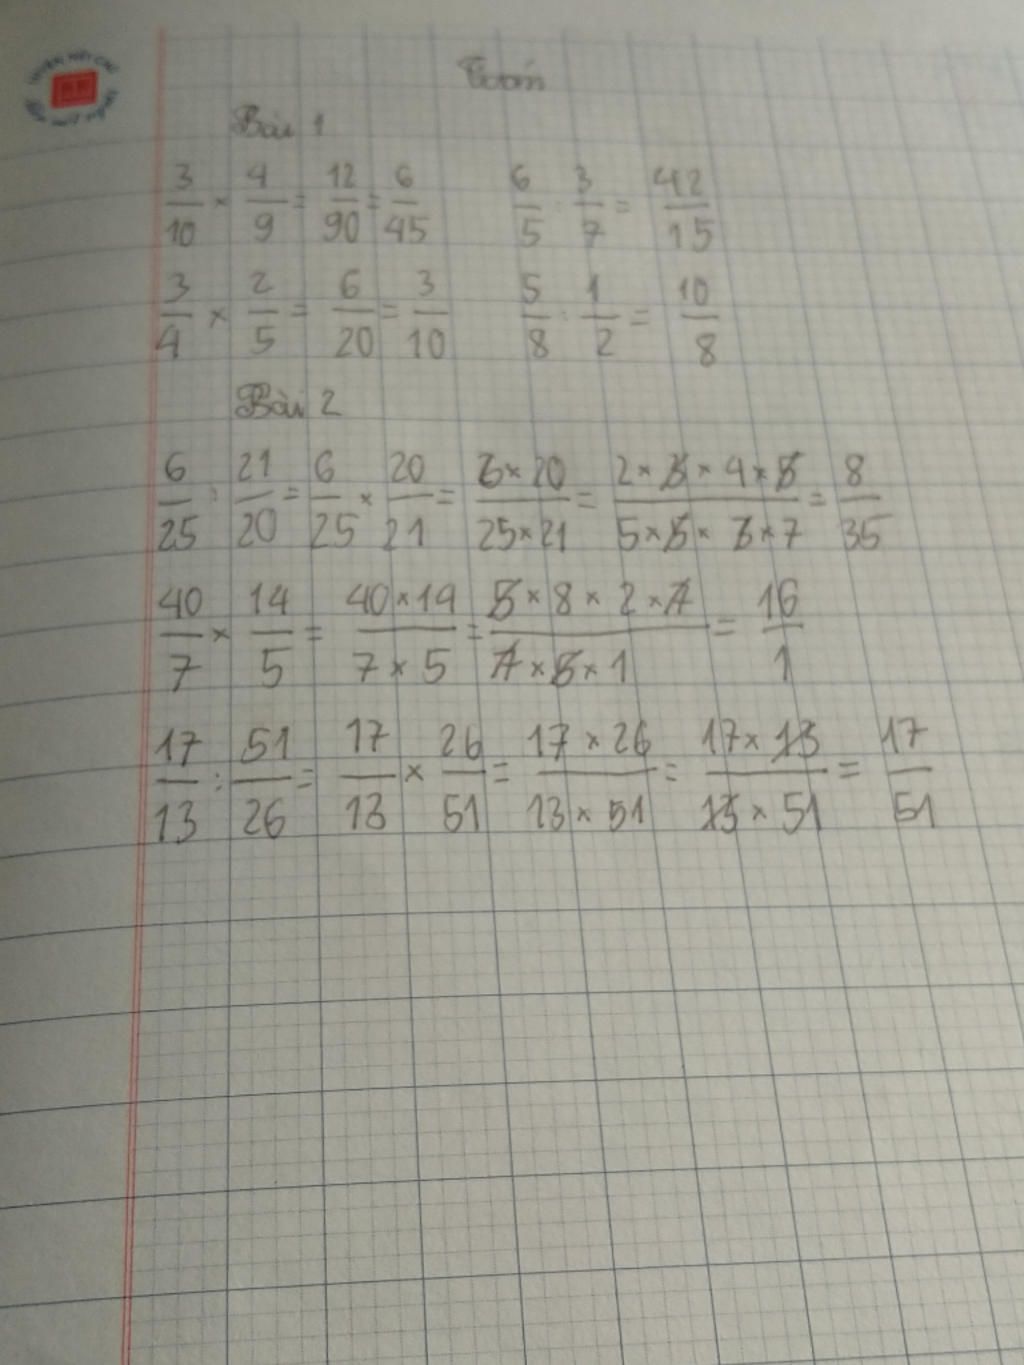 Toán
Bài 1
3/10 × 4/9 = 12/90 = 6/45    6/5 : 3/7 = 42/15
3/4 × 2/5 = 6/20 = 3/10    5/8 : 1/2 = 10/8
Bài 2
6/25 : 21/20 = 6/25 × 20/21 = 6×20/25×21 = 2×3×4×5/5×5×3×7 = 8/35
40/7 × 14/5 = 40×14/7×5 = 5×8×2×7/7×5×1 = 16/1
17/13 : 51/26 = 17/13 × 26/51 = 17×26/13×51 = 17×13/13×51 = 17/51